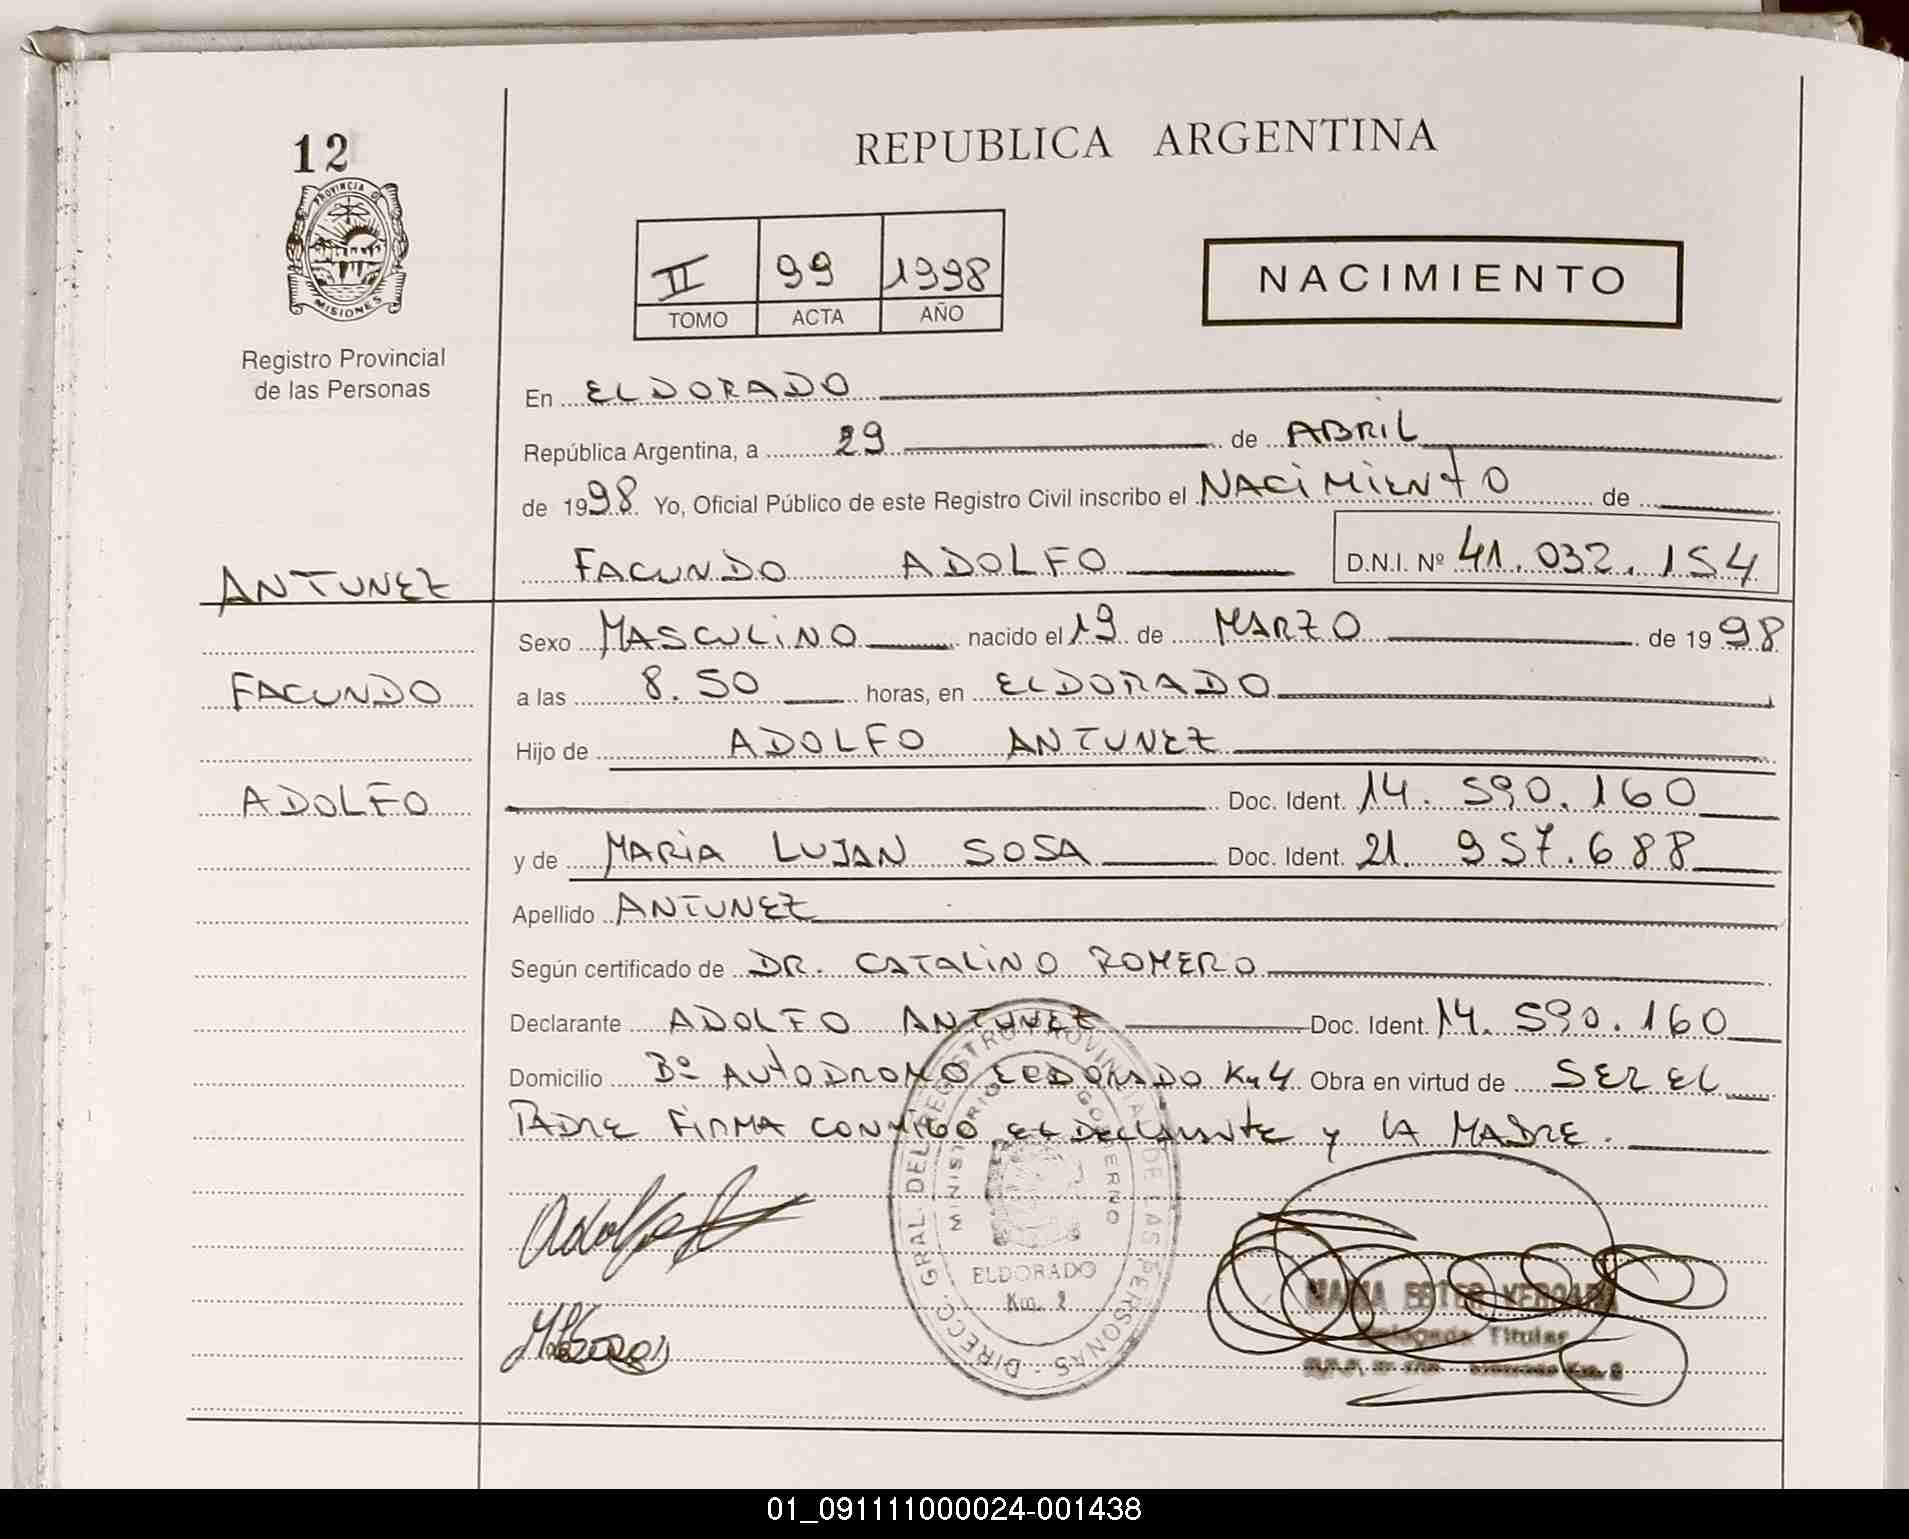 12
PROVINCIA DE
MISIONES
Registro Provincial
de las Personas
REPUBLICA ARGENTINA
II 99 1998
TOMO ACTA AÑO
NACIMIENTO
En ELDORADO
República Argentina, a 29 de ABRIL
de 1998 Yo, Oficial Público de este Registro Civil inscribo el NACIMIENTO de
ANTUNEZ FACUNDO ADOLFO D.N.I. Nº 41.032.154
Sexo MASCULINO nacido el 19 de MARZO de 1998
FACUNDO a las 8.50 horas, en ELDORADO
Hijo de ADOLFO ANTUNEZ
ADOLFO Doc. Ident. 14.590.160
y de MARIA LUJAN SOSA Doc. Ident. 21.957.688
Apellido ANTUNEZ
Según certificado de DR. CATALINO ROMERO
Declarante ADOLFO ANTUNEZ Doc. Ident. 14.590.160
Domicilio Bº AUTODROMO ELDORADO Km 4 Obra en virtud de SER EL
PADRE FIRMA CONMIGO EL DECLARANTE y LA MADRE.
DIRECC. GRAL. DEL REGISTRO PROVINCIAL DE LAS PERSONAS
MINISTERIO GOBIERNO
ELDORADO
Km. 2
MARIA ESTER VERGARA
Delegada Titular